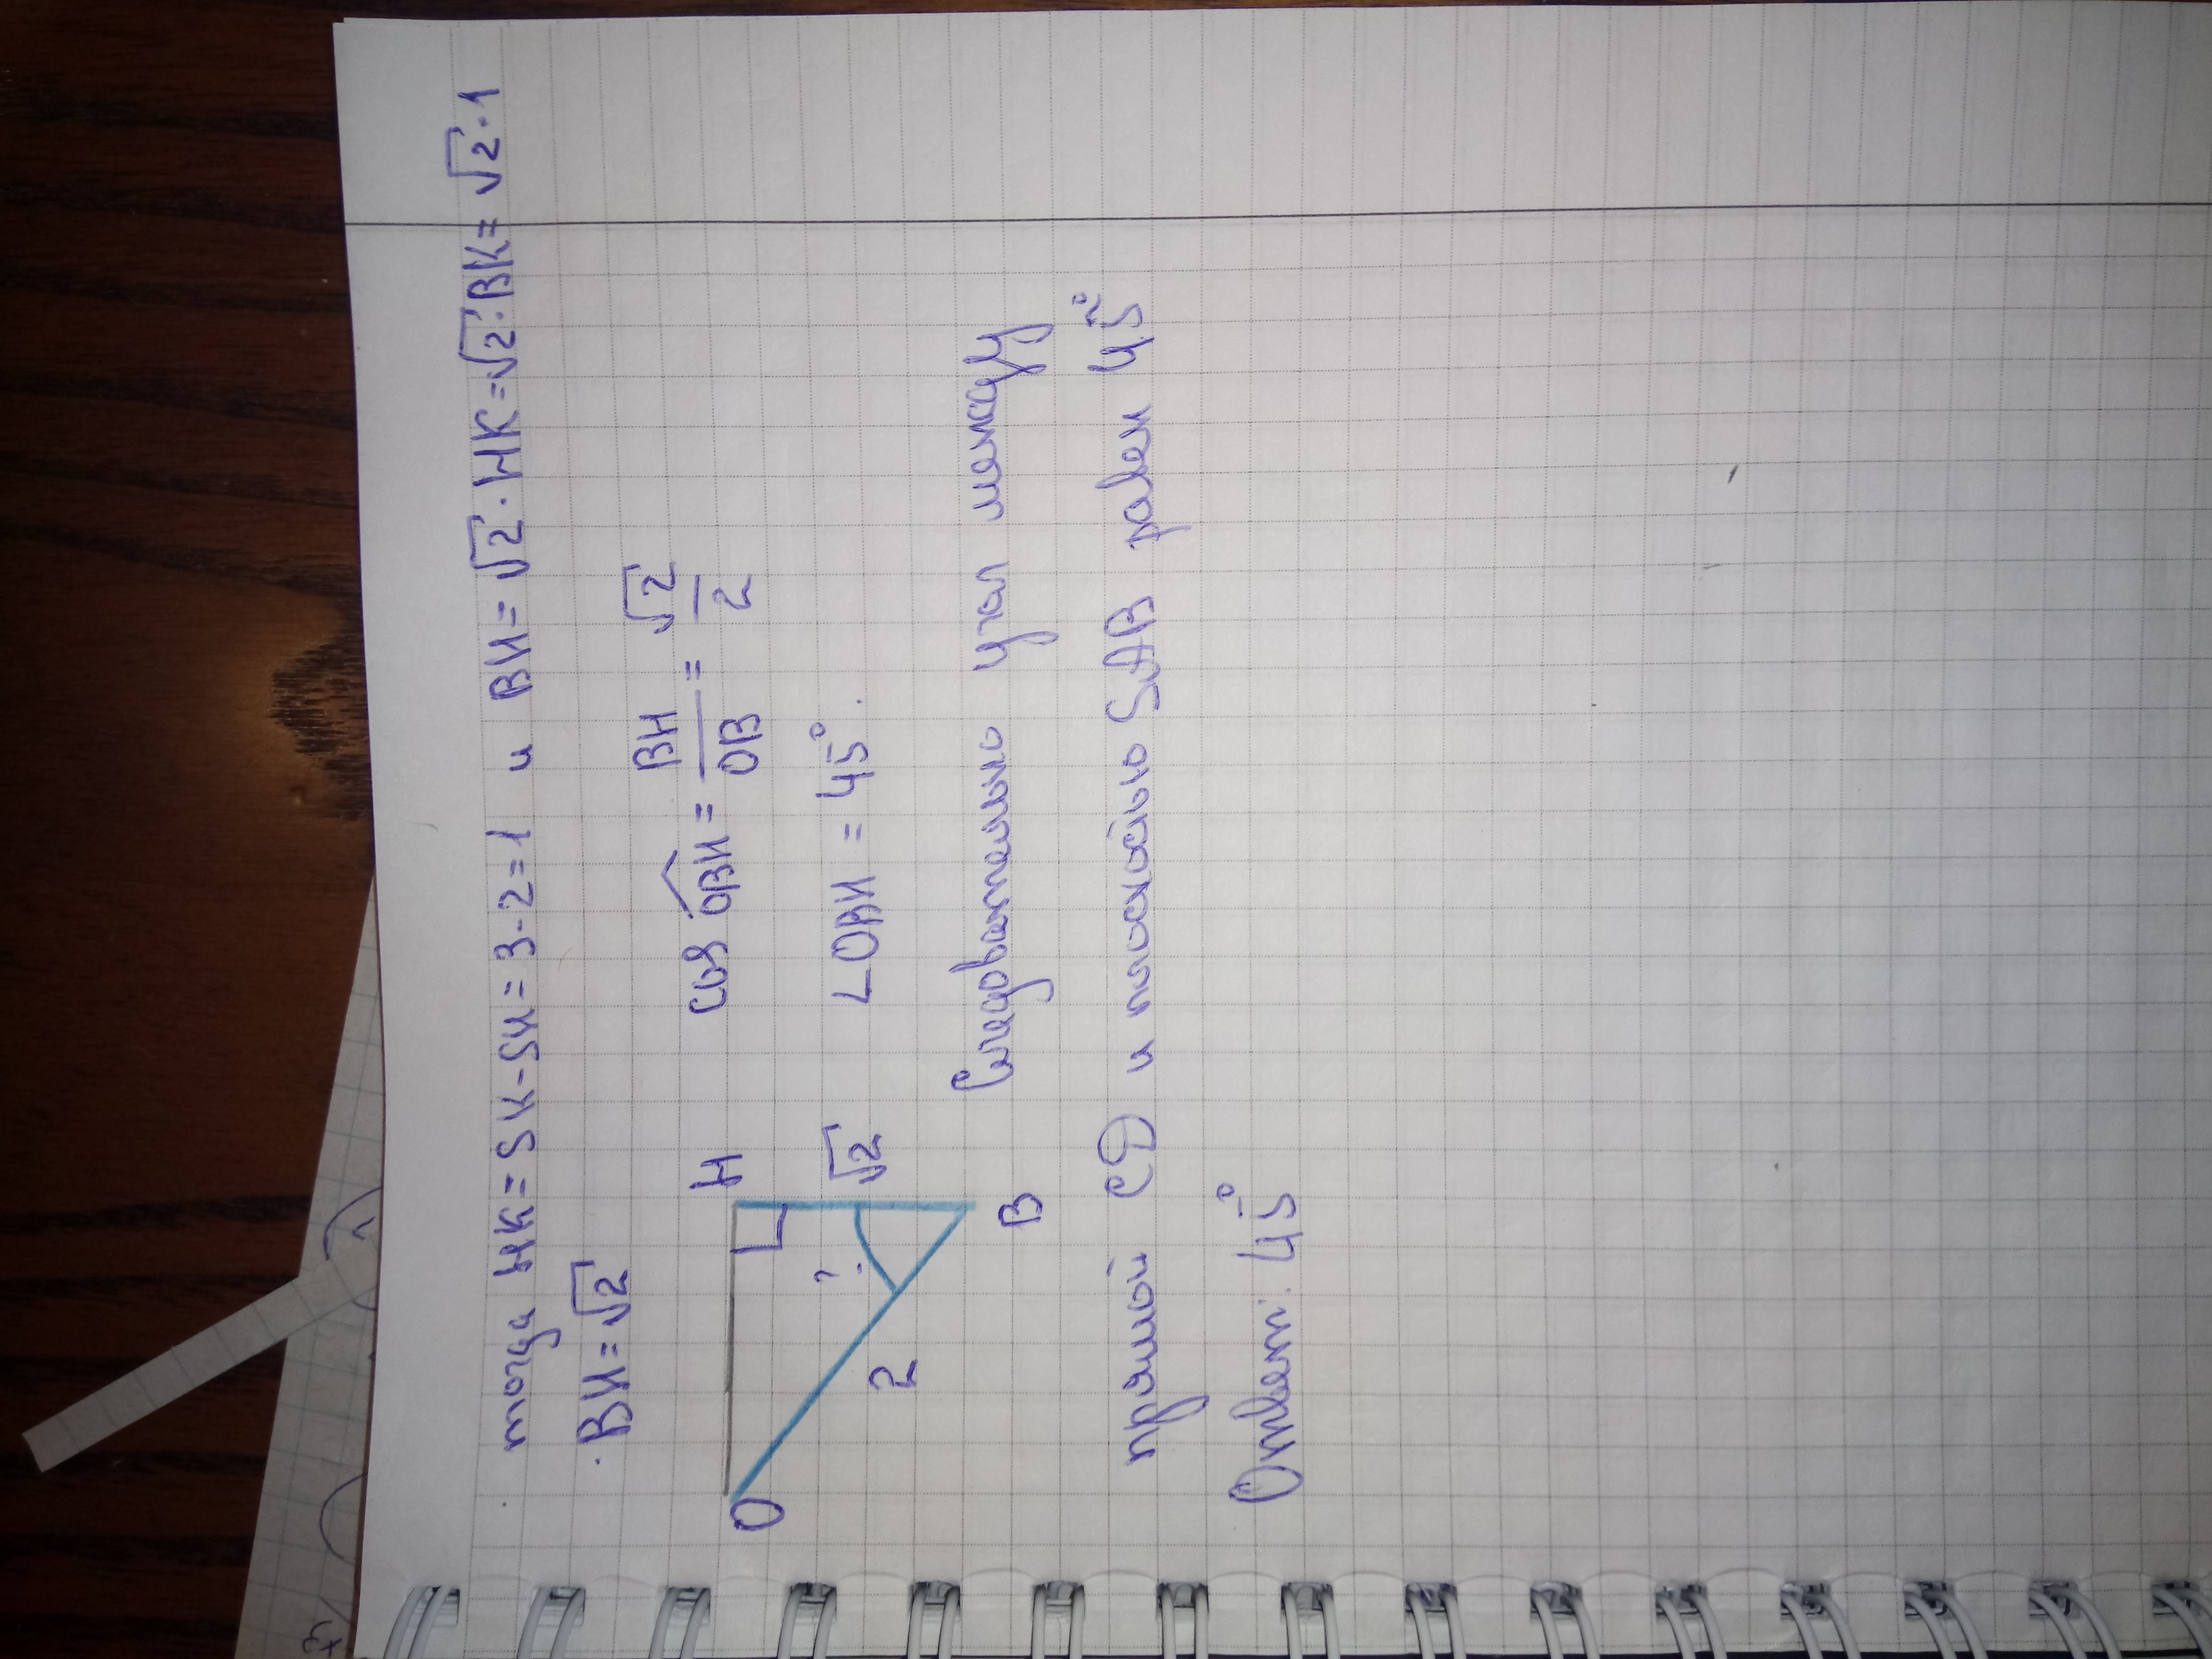 тогда HK = SK - SH = 3 - 2 = 1 и BH = √2 · HK = √2 · BK = √2 · 1
· BH = √2
H
cos OBH = BH/OB = √2/2
?
√2
2
∠OBH = 45°.
O
B
Следовательно угол между
прямой CD и плоскостью SAB равен 45°
Ответ: 45°